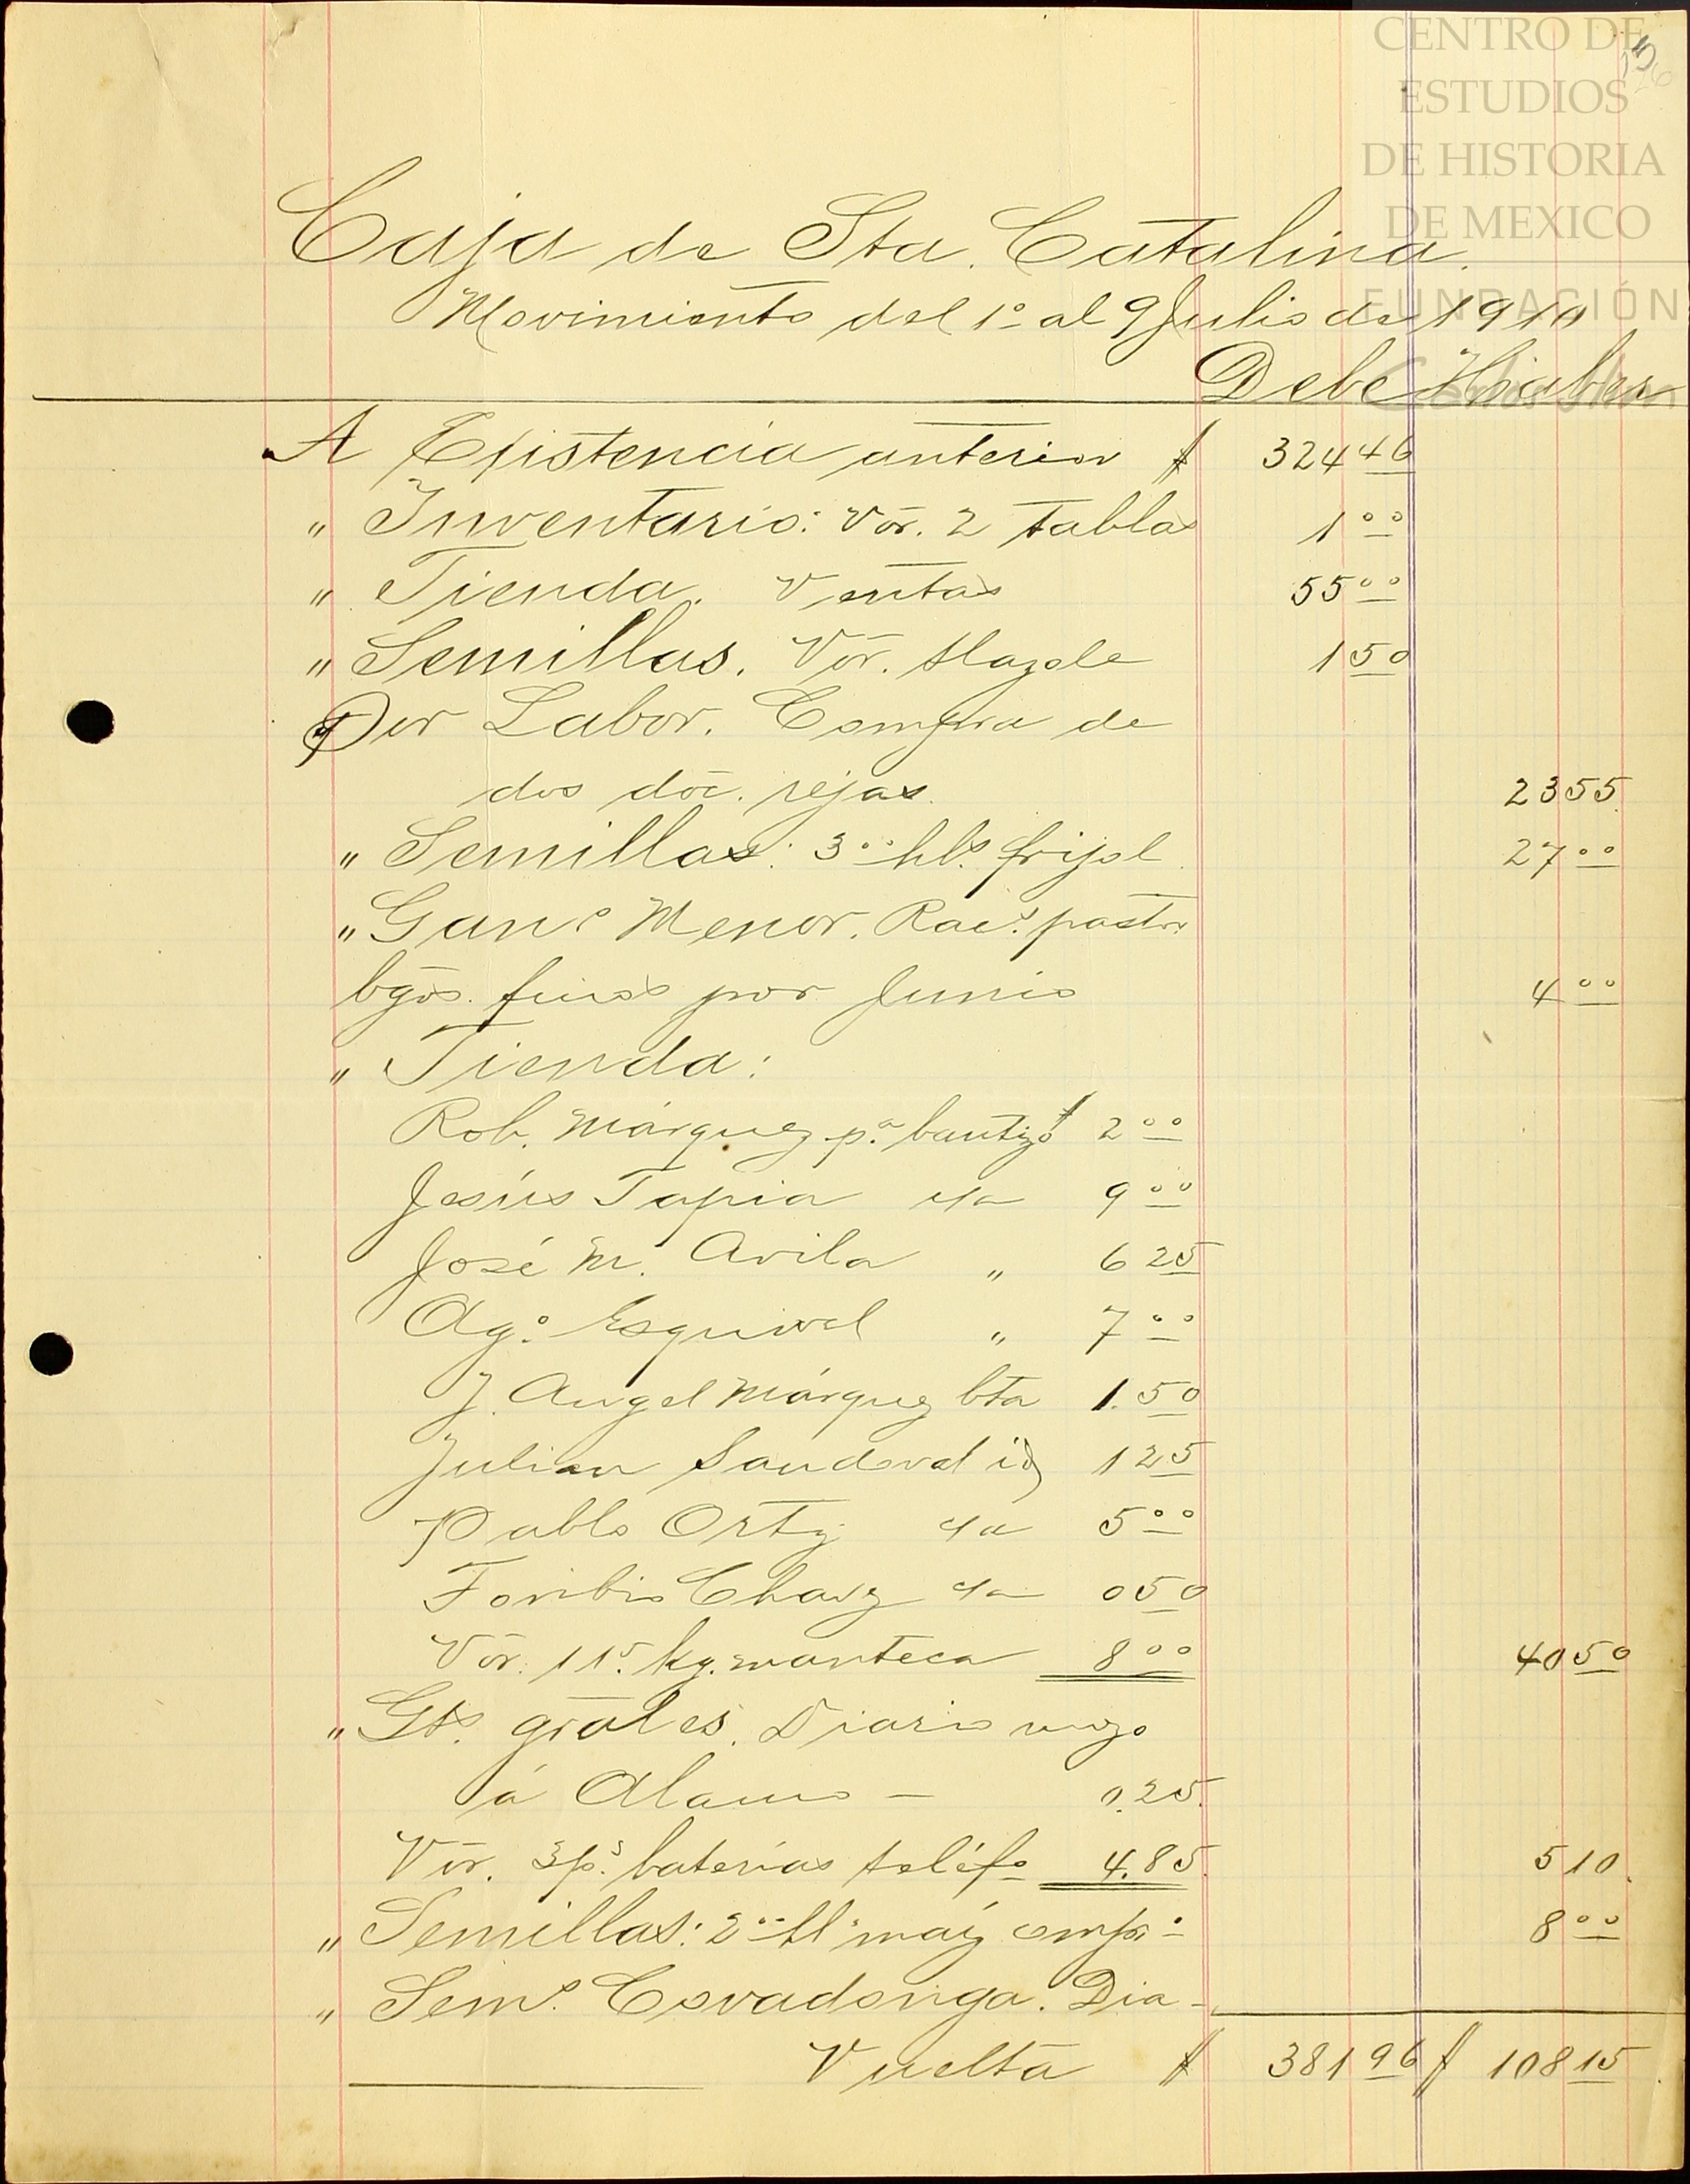 CENTRO DE
ESTUDIOS
DE HISTORIA
DE MEXICO
FUNDACIÓN
Caja de Sta. Catalina.
Movimiento del 1º al 9 Julio de 1910
Debe Haber
A Existencia anterior $ 324 46
" Inventario: Vor. 2 tablas 1 00
" Tienda. Ventas 55 00
" Semillas. Vor. tlazole 1 50
Por Labor. Compra de
dos doc. rejas. 23 55
" Semillas: 3 00 hls. frijol. 27 00
" Gano Menor. Racs. pastor
bgos. finos por Junio 4 00
" Tienda:
Rob. Márquez pa. bautizo $ 2 00
Jesús Tapia 9 00
José M. Avila " 6 25
Ago. Esquivel " 7 00
J. Angel Márquez bta 1.50
Julian Sandoval id 1 25
Pablo Ortiz 5 00
Toribio Chavz 0 50
Vor. 11 kg. manteca 8 00 40 50
" Gts. grales. Diario mozo
á Alamo – 0.25.
Vor. 3 ps. baterias teléfo 4.85. 5 10.
" Semillas: 2 00 hl maiz compr 8 00
" Sems. Covadonga. Dia-
Vuelta $ 381 96 $ 108 15